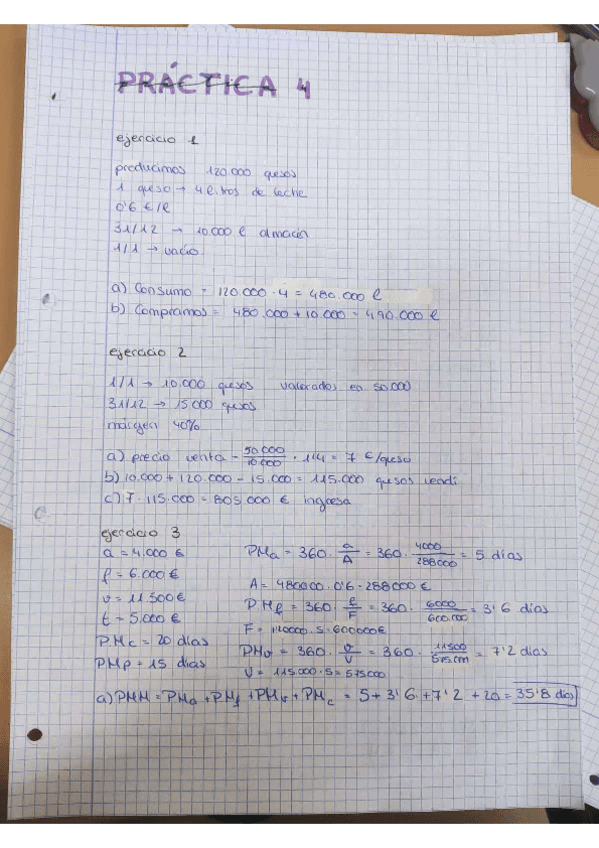 PRÁCTICA 4
ejercicio 1
producimos 120.000 quesos
1 queso → 4 litros de leche
0'6 €/l
31/12 → 10.000 l almacén
1/1 → vacío
a) Consumo = 120.000 · 4 = 480.000 l
b) Compramos = 480.000 + 10.000 = 490.000 l
ejercicio 2
1/1 → 10.000 quesos valorados en 50.000
31/12 → 15.000 quesos
márgen 40%
a) precio venta = 50.000/10.000 · 1'4 = 7 €/queso
b) 10.000 + 120.000 - 15.000 = 115.000 quesos vendí
c) 7 · 115.000 = 805.000 € ingresa
ejercicio 3
a = 4.000 € PMa = 360 · a/A = 360 · 4000/288000 = 5 días
f = 6.000 € A = 480000 · 0'6 = 288000 €
v = 11.500 € PMf = 360 · f/F = 360 · 6000/600.000 = 3'6 días
t = 5.000 € F = 120000 · 5 = 600000 €
PMc = 20 días PMv = 360 · v/V = 360 · 11500/575000 = 7'2 días
PMp = 15 días V = 115.000 · 5 = 575000
a) PMM = PMa + PMf + PMv + PMc = 5 + 3'6 + 7'2 + 20 = 35'8 días